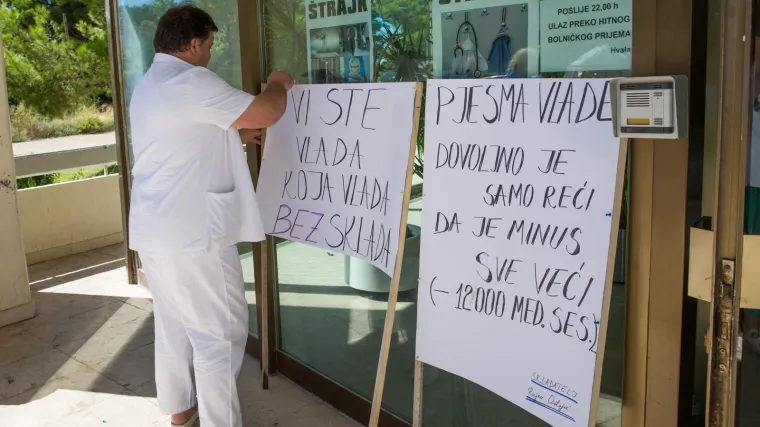 ŠTRAJK
ŠTRAJK
POSLIJE 22,00 h
ULAZ PREKO HITNOG
BOLNIČKOG PRIJEMA
Hvala
VI STE
VLADA
KOJA VLADA
BEZ SKLADA
PJESMA VLADE
DOVOLJNO JE
SAMO REĆI
DA JE MINUS
SVE VEĆI
(-12000 MED. SES.)
SKLADATELJ